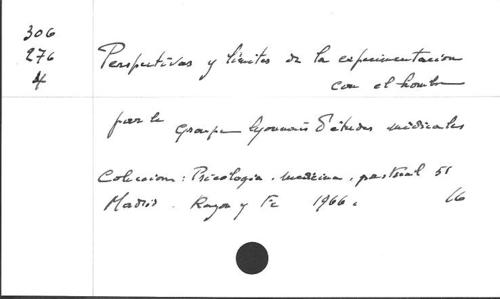 306
276
4
Perspectivas y límites de la experimentacion
con el hombre
par le Groupe lyonnais d'études médicales
Coleccion: Psicologia. medicina. pastoral 51
Madrid. Razon y Fe 1966.